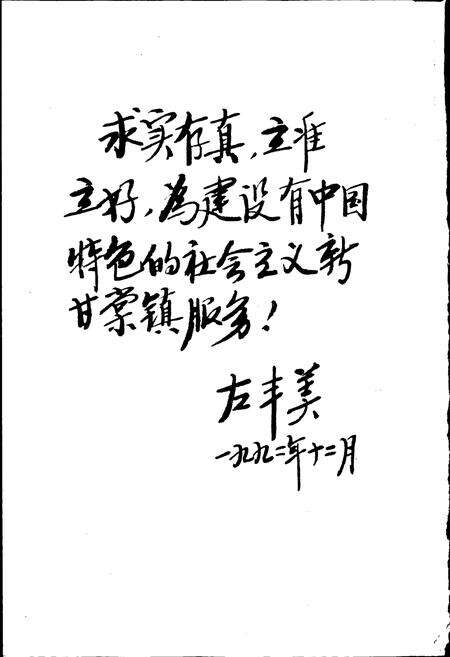 求实存真，立准
立好，為建设有中国
特色的社会主义新
甘棠镇服务！
左丰美
一九九二年十二月